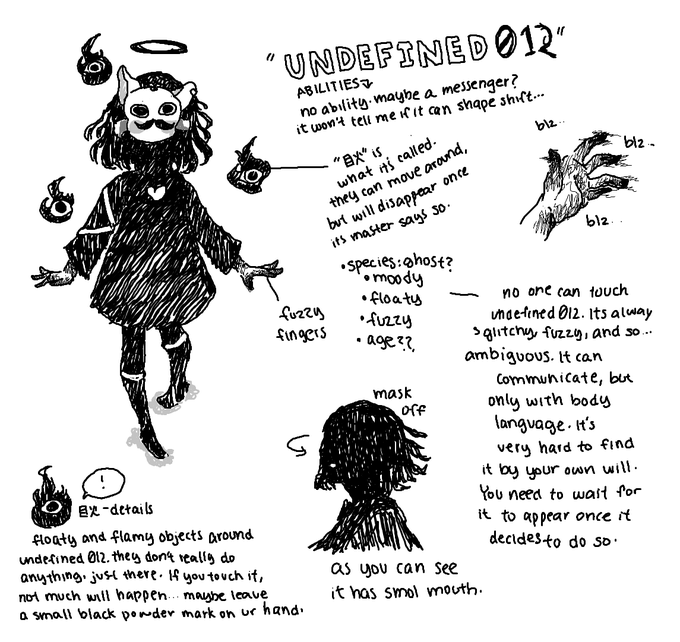 "UNDEFINED 012"
ABILITIES
no ability. maybe a messenger?
it won't tell me if it can shape shift...
"目火" is
what it's called.
they can move around,
but will disappear once
its master says so.
blz..
blz..
blz..
•species: ghost?
•moody
•floaty
•fuzzy
•age??
fuzzy
fingers
no one can touch
undefined 012. Its alway
s glitchy, fuzzy, and so...
ambiguous. It can
communicate, but
only with body
language. It's
very hard to find
it by your own will.
You need to wait for
it to appear once it
decides to do so.
mask
off
as you can see
it has smol mouth.
!
目火-details
floaty and flamy objects around
undefined 012. they don't really do
anything. just there. If you touch it,
not much will happen... maybe leave
a small black powder mark on ur hand.